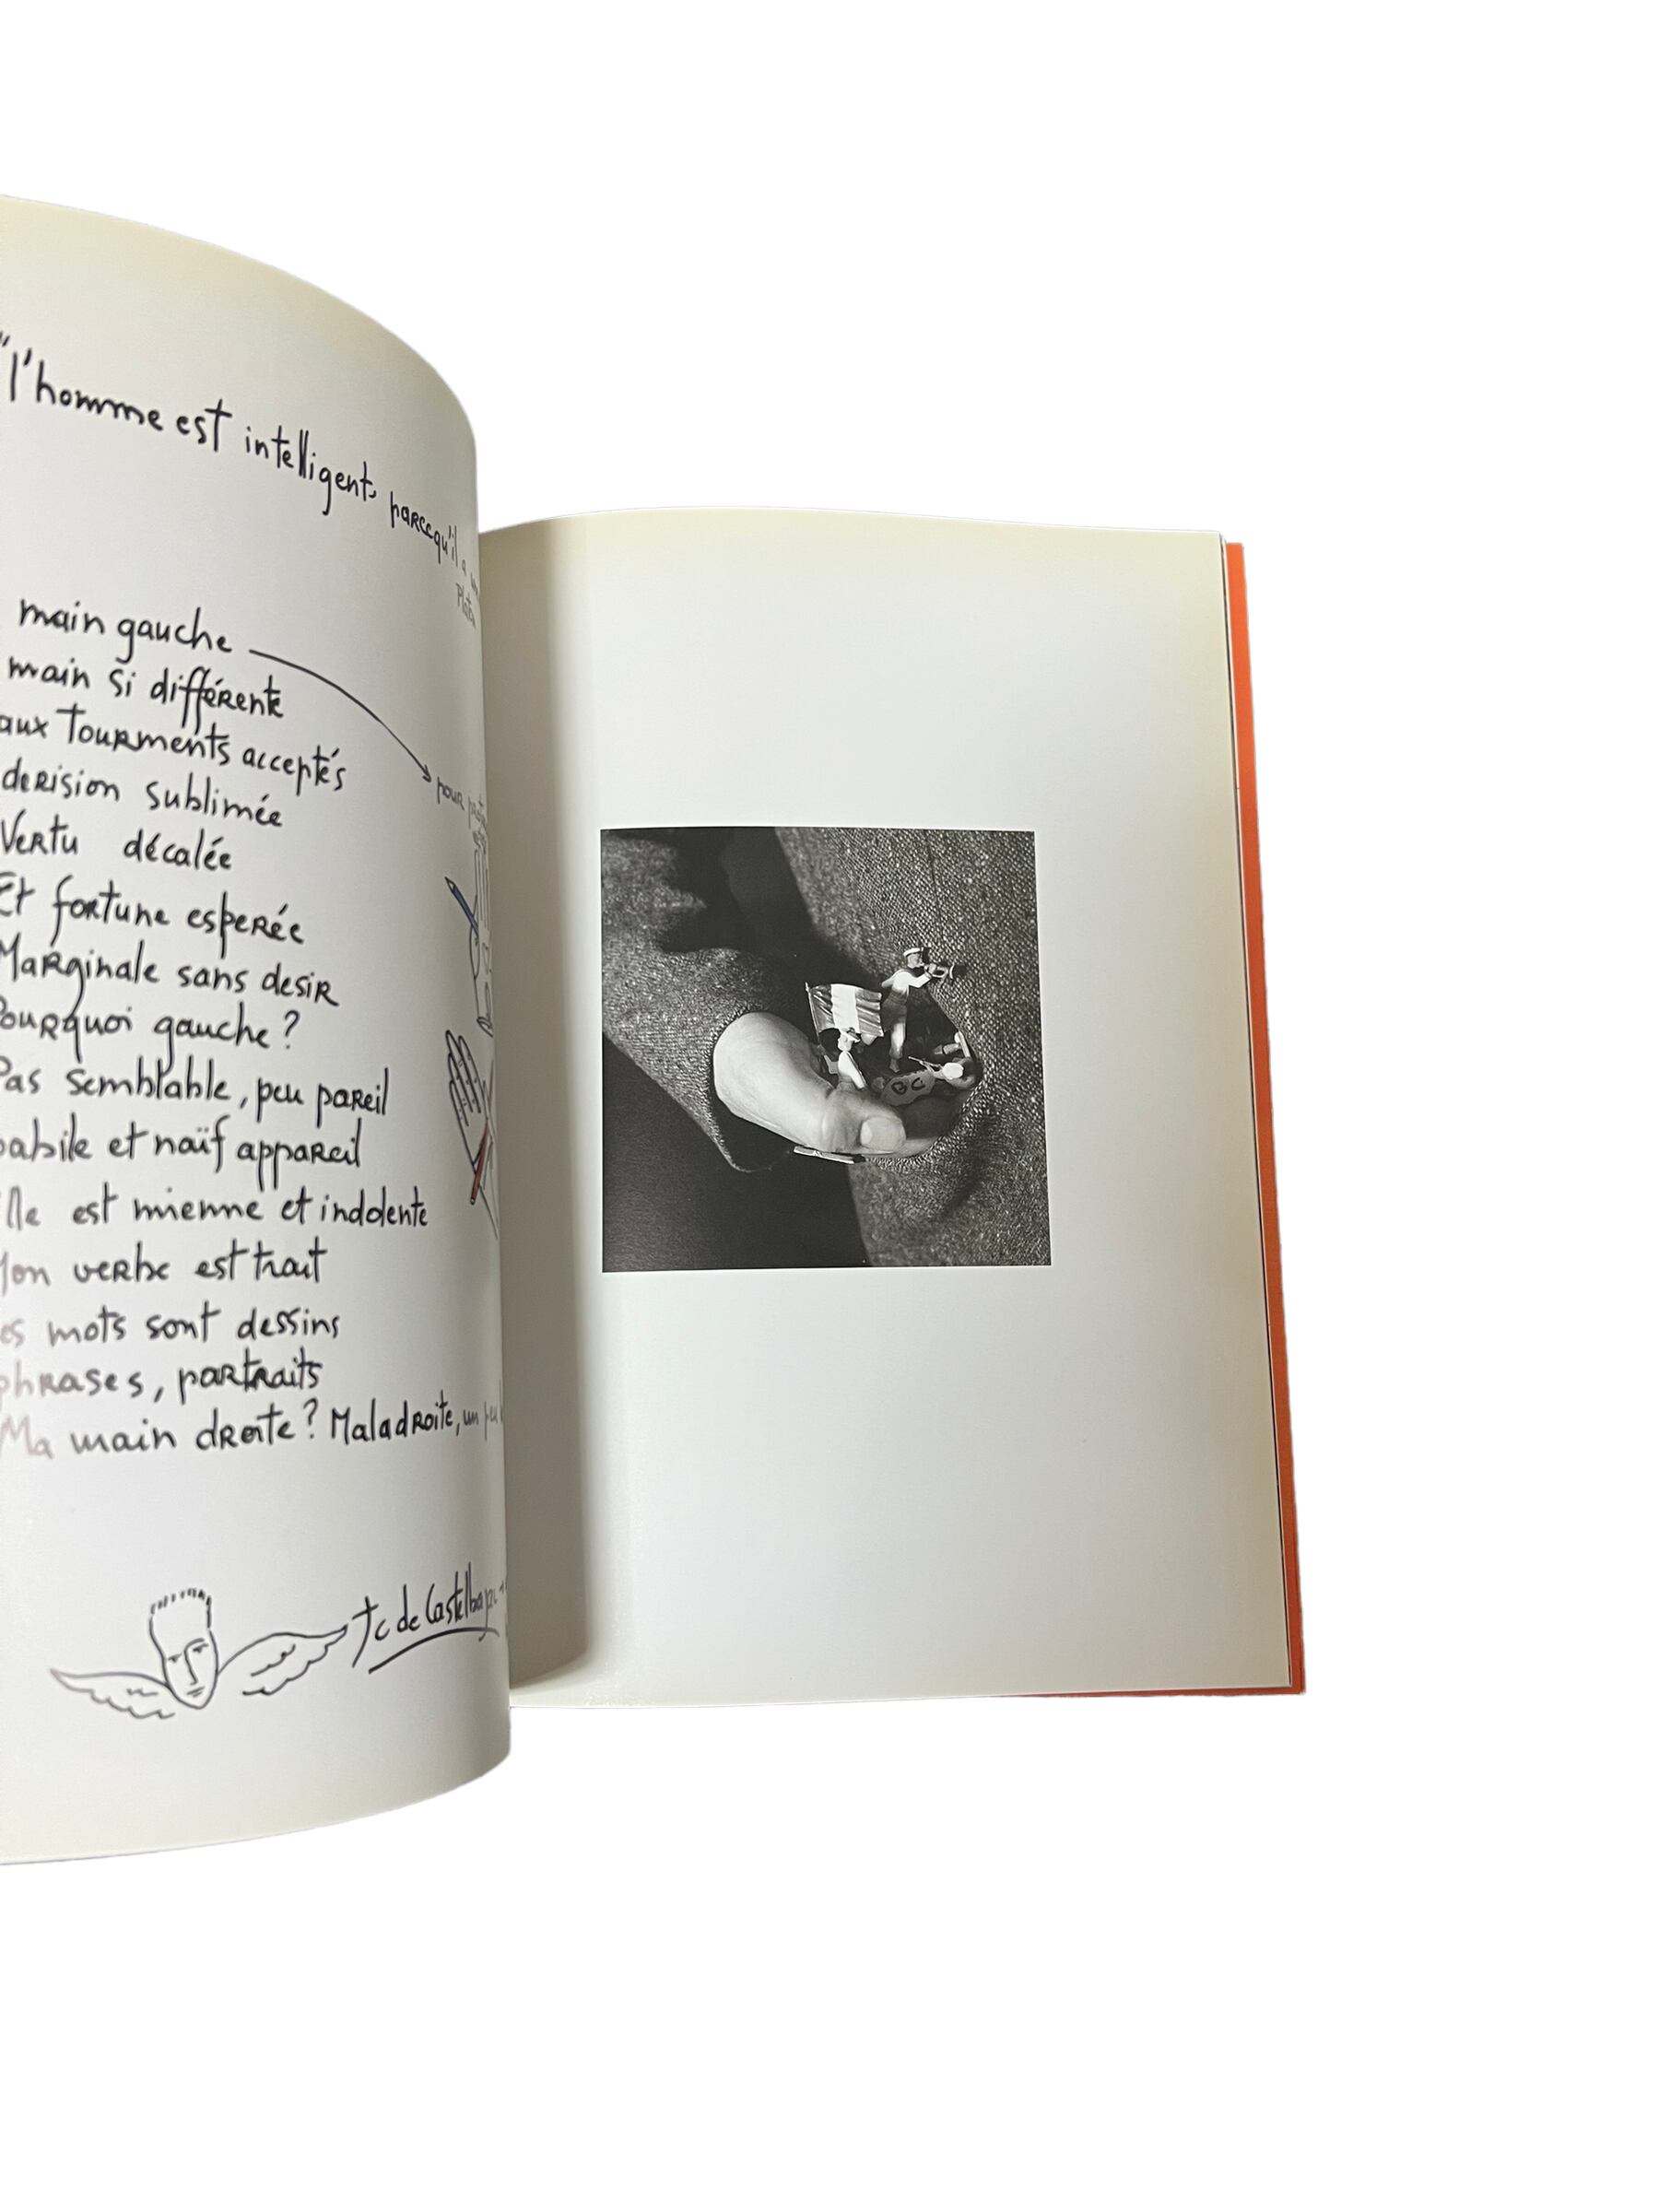 "l'homme est intelligent, parcequ'il a
main gauche
main si différente
aux Tourments acceptés
derision sublimée
Vertu décalée
Et fortune esperée
Marginale sans desir
Pourquoi gauche ?
Pas semblable, peu pareil
habile et naïf appareil
Elle est mienne et indolente
Mon verbe est trait
mots sont dessins
phrases, portraits
Ma main droite ? Maladroite, un peu
pour
JC de Castelbajac
BC